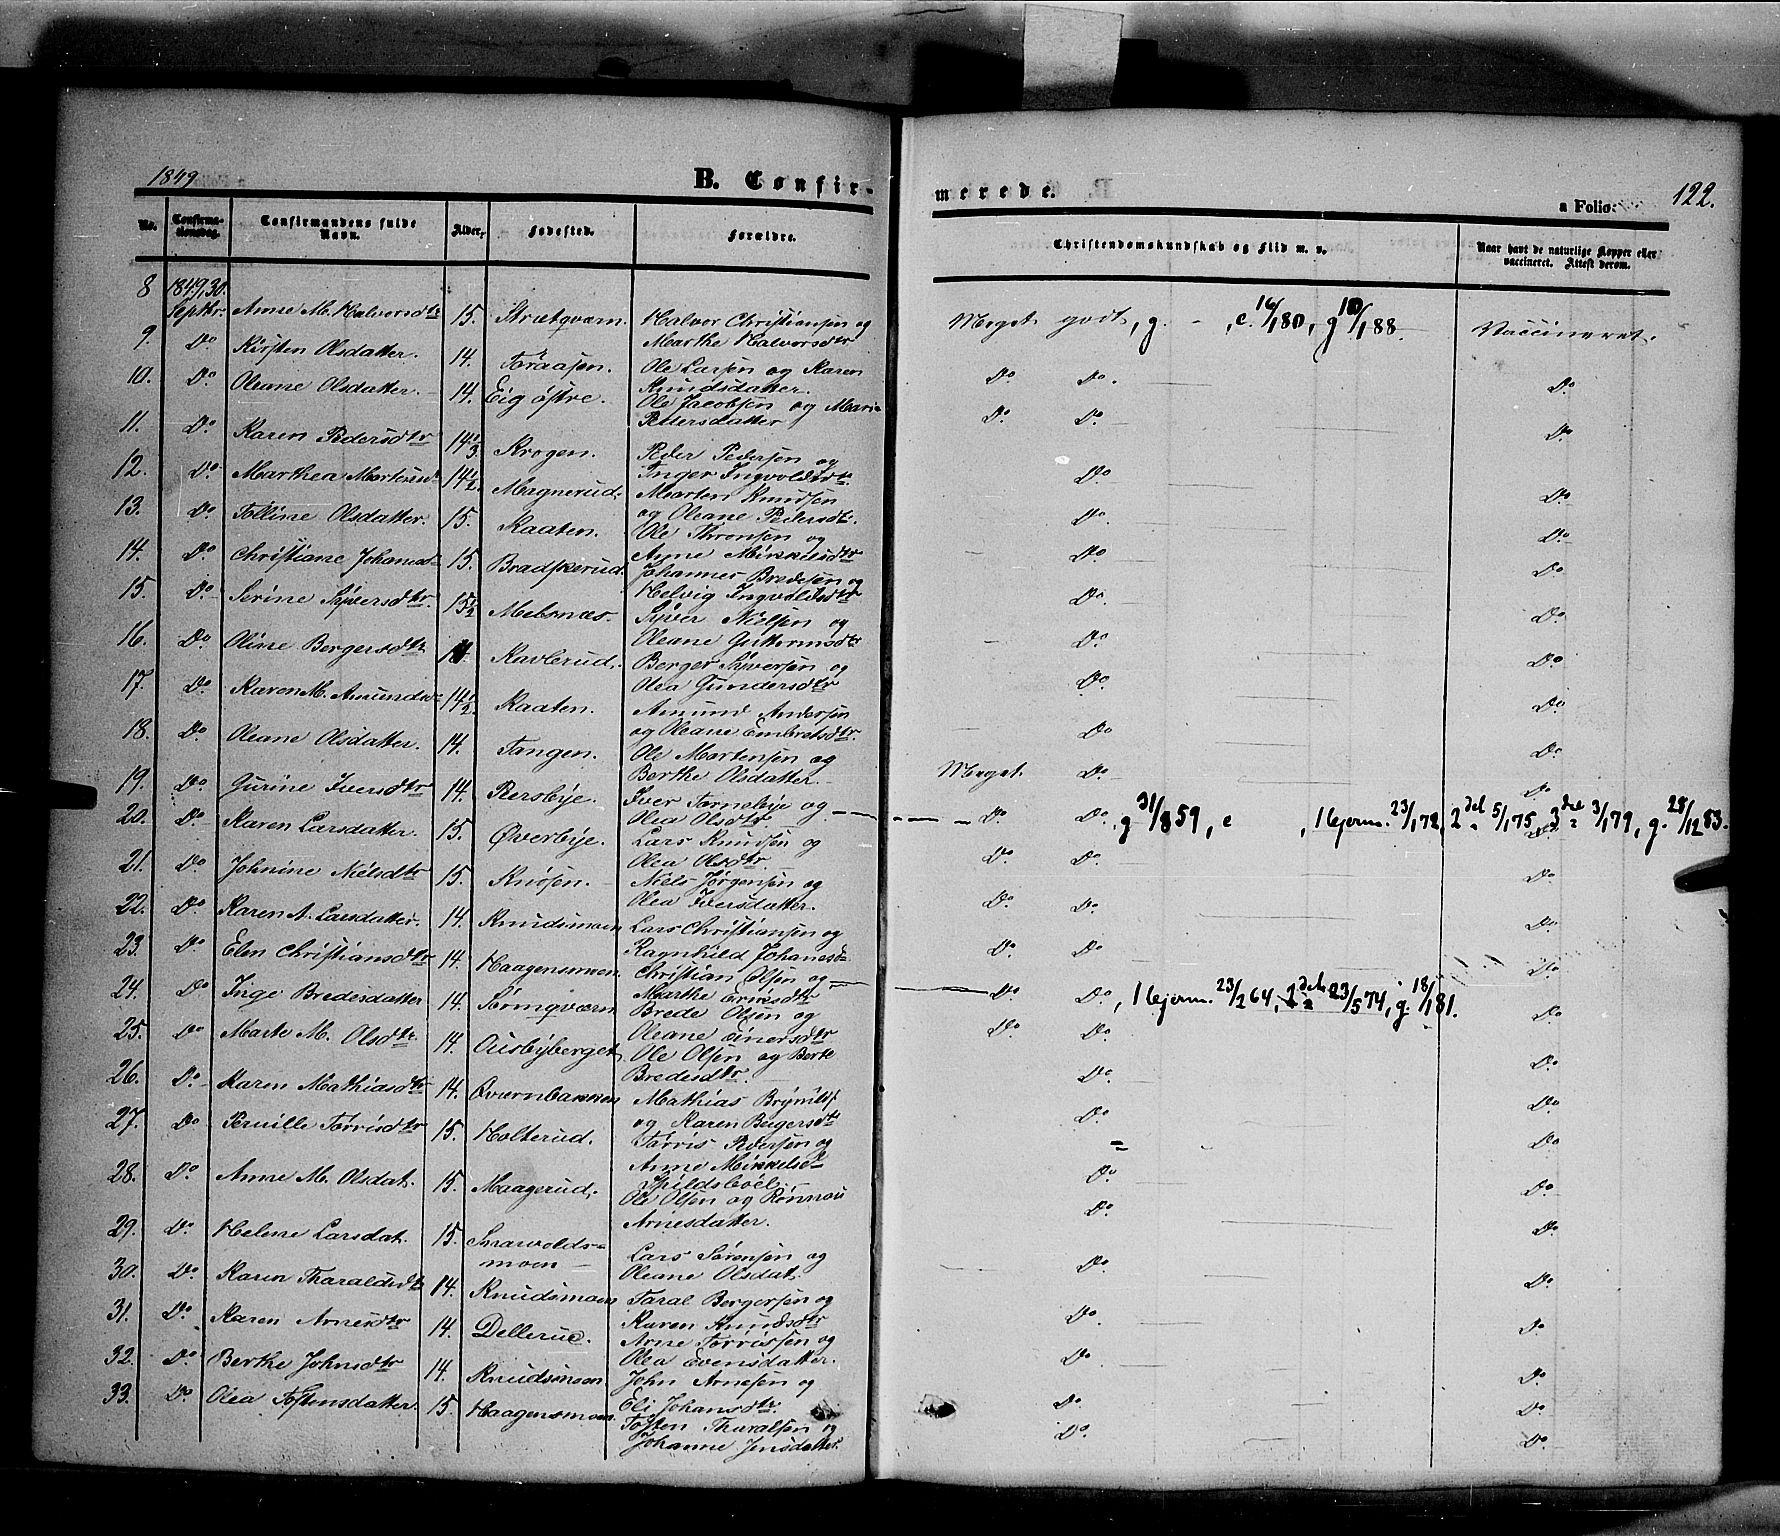 1849
B. Confir-
merede.
a Folio:
122.
No.
Confirma-
tionsdag.
Confirmandens fulde
Navn.
Alder.
Fødested.
Forældre.
Christendomskundskab og Flid m. v.
Naar havt de naturlige Kopper eller
vaccineret. Attest derom.
8 1849, 30.
Septbr. Anne M. Halvorsdtr 15. Strætqværn. Halvor Christiansen og
Marthe Halvorsdtr Meget godt, g. - , c. 16/180, g 10/188. Vaccineret.
9. Do Kirsten Olsdatter. 14. Toraasen. Ole Larsen og Karen
Knudsdatter. Do Do. Do.
10. Do Oleane Olsdatter. 14. Eig østre. Ole Jacobsen og Mari
Pettersdatter Do. Do. Do.
11. Do. Karen Pedersdtr 14 1/3 Krogen. Peder Pedersen og
Inger Ingvoldsdtr. Do Do.
12. Do. Marthea Martinsd. 14 1/2. Magnerud. Morten Knudsen
og Oleane Pedersdtr. Do. Do.
13. Do. Tolline Olsdatter. 15. Kaaten. Ole Thronsen og
Anne Mikkelsdtr Do Do.
14. Do. Christiane Johannsd 15. Bradskerud. Johannes Bredesen og
Helvig Ingvoldsdtr Do. Do.
15. Do. Serine Syversdtr. 15 1/2 Melsnæs. Syver Nielsen og
Oleane Guttormsdtr Do. Do.
16. Do Oline Bergersdtr Kavlerud. Berger Syversen og
Olea Gundersdtr Do. Do.
17. Do. Karen M. Amundsd 14 1/2. Kaaten. Amund Andersen
og Oleane Embretsdtr. Do Do.
18. Do. Oleane Olsdatter. 14. Tangen. Ole Mortensen og
Berthe Olsdatter. Meget Do Do.
19. Do. Gurine Iversdtr 14. Bersbye. Iver Tornebye og
Olea Olsdtr. Do. Do. g 31/8 59, c , Hjem. 23/172, 2 del 5/175, 3 del 3/179, g. 28/12 83.
20. Do. Karen Larsdatter. 15. Øverbye. Lars Knudsen og
Olea Olsdtr. Do. Do. Do.
21. Do Johnine Nielsdtr 15. Knösen. Niels Jørgensen og
Olea Iversdatter. Do. Do. Do.
22. Do. Karen A. Larsdatter. 14. Knudsmoen Lars Christiansen og
Ragnhild Johanesd Do. Do. Do.
23. Do. Elen Christiansdtr 14. Haagensmoen. Christian Olsen og
Marthe Eriksdtr Do. Do. , Hjem. 23/2 64, 2 del 23/5 74, g. 18/181.
24. Do. Inge Bredesdatter 14. Brede Olsen og
Oleane Einersdtr Do. Do. Do.
25. Do Marte M. Olsdtr. 14. Ausbyberget. Ole Olsen og Berte
Bredesdtr. Do. Do.
26. Do. Karen Mathiasdtr 14. Qværnbakken Mathias Brynilds.
og Karen Bergersdtr Do. Do.
27. Do Pernille Torrisdtr 15. Holterud. Torris Pedersen og
Anne Mikkelsd = Do.
28. Do Anne M. Olsdat. 15. Maagerud.
Ole Olsen og Rønnou
Arnesdatter. Do. Do.
29. Do. Helene Larsdat. 15. Snarvolds-
moen Lars Sørensen og
Oleane Olsdat. Do. Do.
30. Do. Karen Tharaldsdtr 14. Knudsmoen Taral Bergersen og
Karen Knudsdtr Do. Do.
31. Do. Karen Arnesdtr 14. Dellerud. Arne Torrissen og
Olea Evensdatter. Do. Do.
32. Do. Berthe Johnsdtr 14. Knudsmoen John Arnesen og
Eli Johansdtr. Do. Do.
33. Do Olea Tostensdatter. 15. Haagensmoen Tosten Tharalsen og
Johanne Jensdatter. Do. Do.